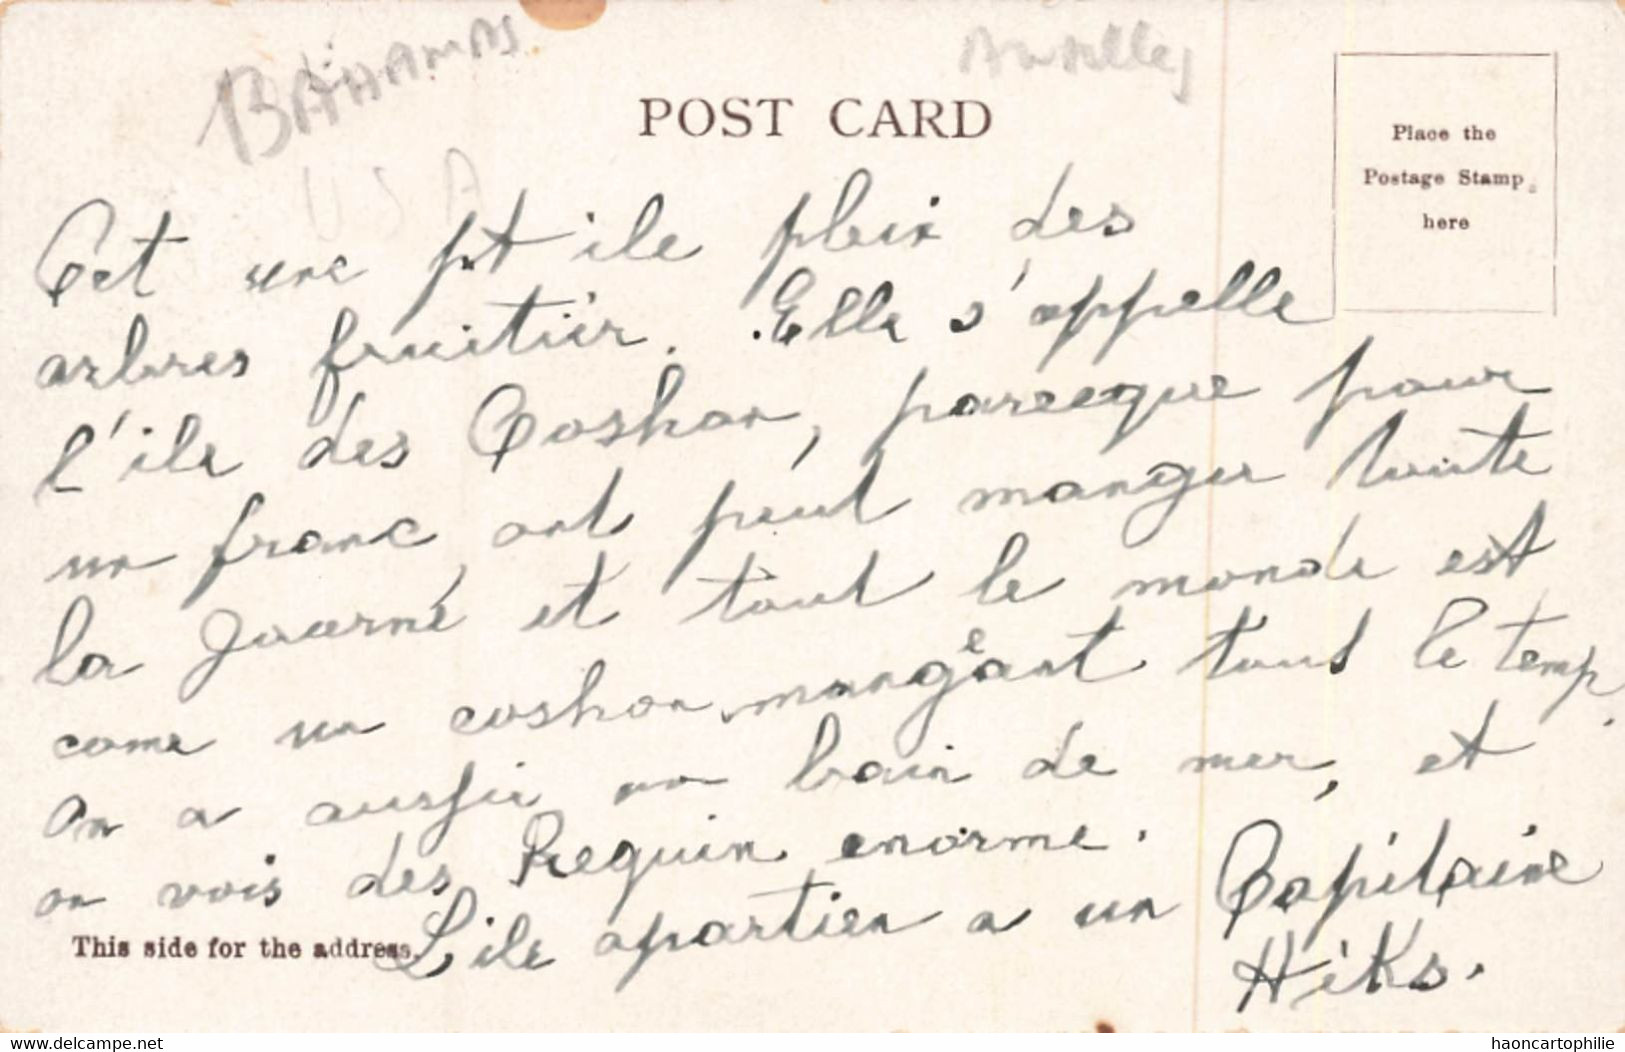 BAHAMAS
Antilles
USA
POST CARD
Place the
Postage Stamp
here
Cet une pt ile plein des
arbres fruitier. Elle s'appelle
l'ile des Coshon, parceque pour
un franc ont peut manger toute
la journé et tout le monde est
come un coshon mangeant tout le temp.
On a aussi un bain de mer, et
on vois des Requin enorme.
L'ile apartien a un Capitaine
Hiks.
This side for the address.
delcampe.net
haoncartophilie